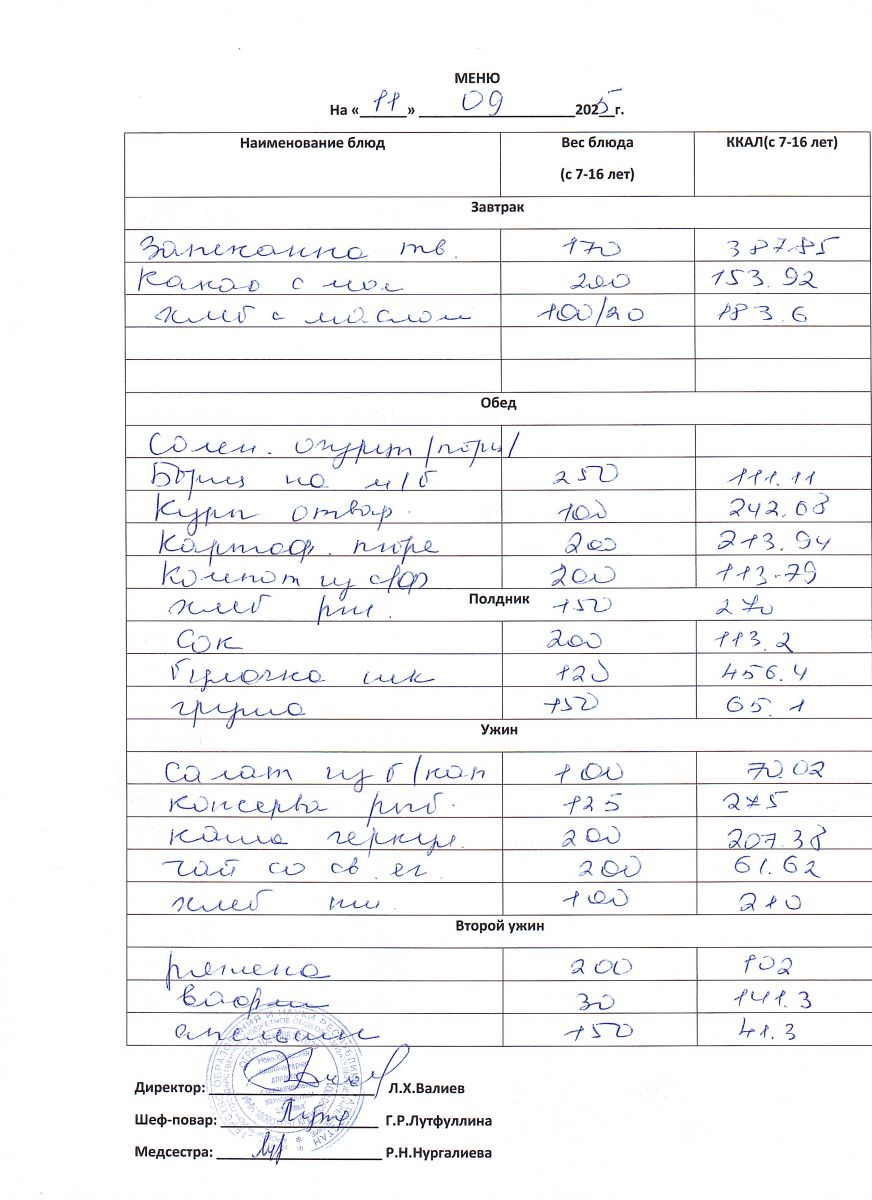 МЕНЮ
На «11» 09 2025 г.
Наименование блюд Вес блюда (с 7-16 лет) ККАЛ(с 7-16 лет)
Завтрак
Запеканка тв. 170 387.85
Какао с мол 200 153.92
Хлеб с маслом 100/20 183.6
Обед
Солен. огурец /порц/
Борщ на м/б 250 111.11
Куры отвар. 100 242.68
Картоф. пюре 200 213.94
Компот из с/ф 200 113.79
Полдник
хлеб рж. 150 270
Сок 200 113.2
булочка 120 456.4
груша 150 65.1
Ужин
Салат из б/кап 100 70.02
консерва рыб. 125 275
каша геркул. 200 207.38
чай со св. яг. 200 61.62
хлеб пш. 100 210
Второй ужин
ряжена 200 102
вафли 30 141.3
апельсин 150 41.3
Директор: Л.Х.Валиев
Шеф-повар: Г.Р.Лутфуллина
Медсестра: Р.Н.Нургалиева